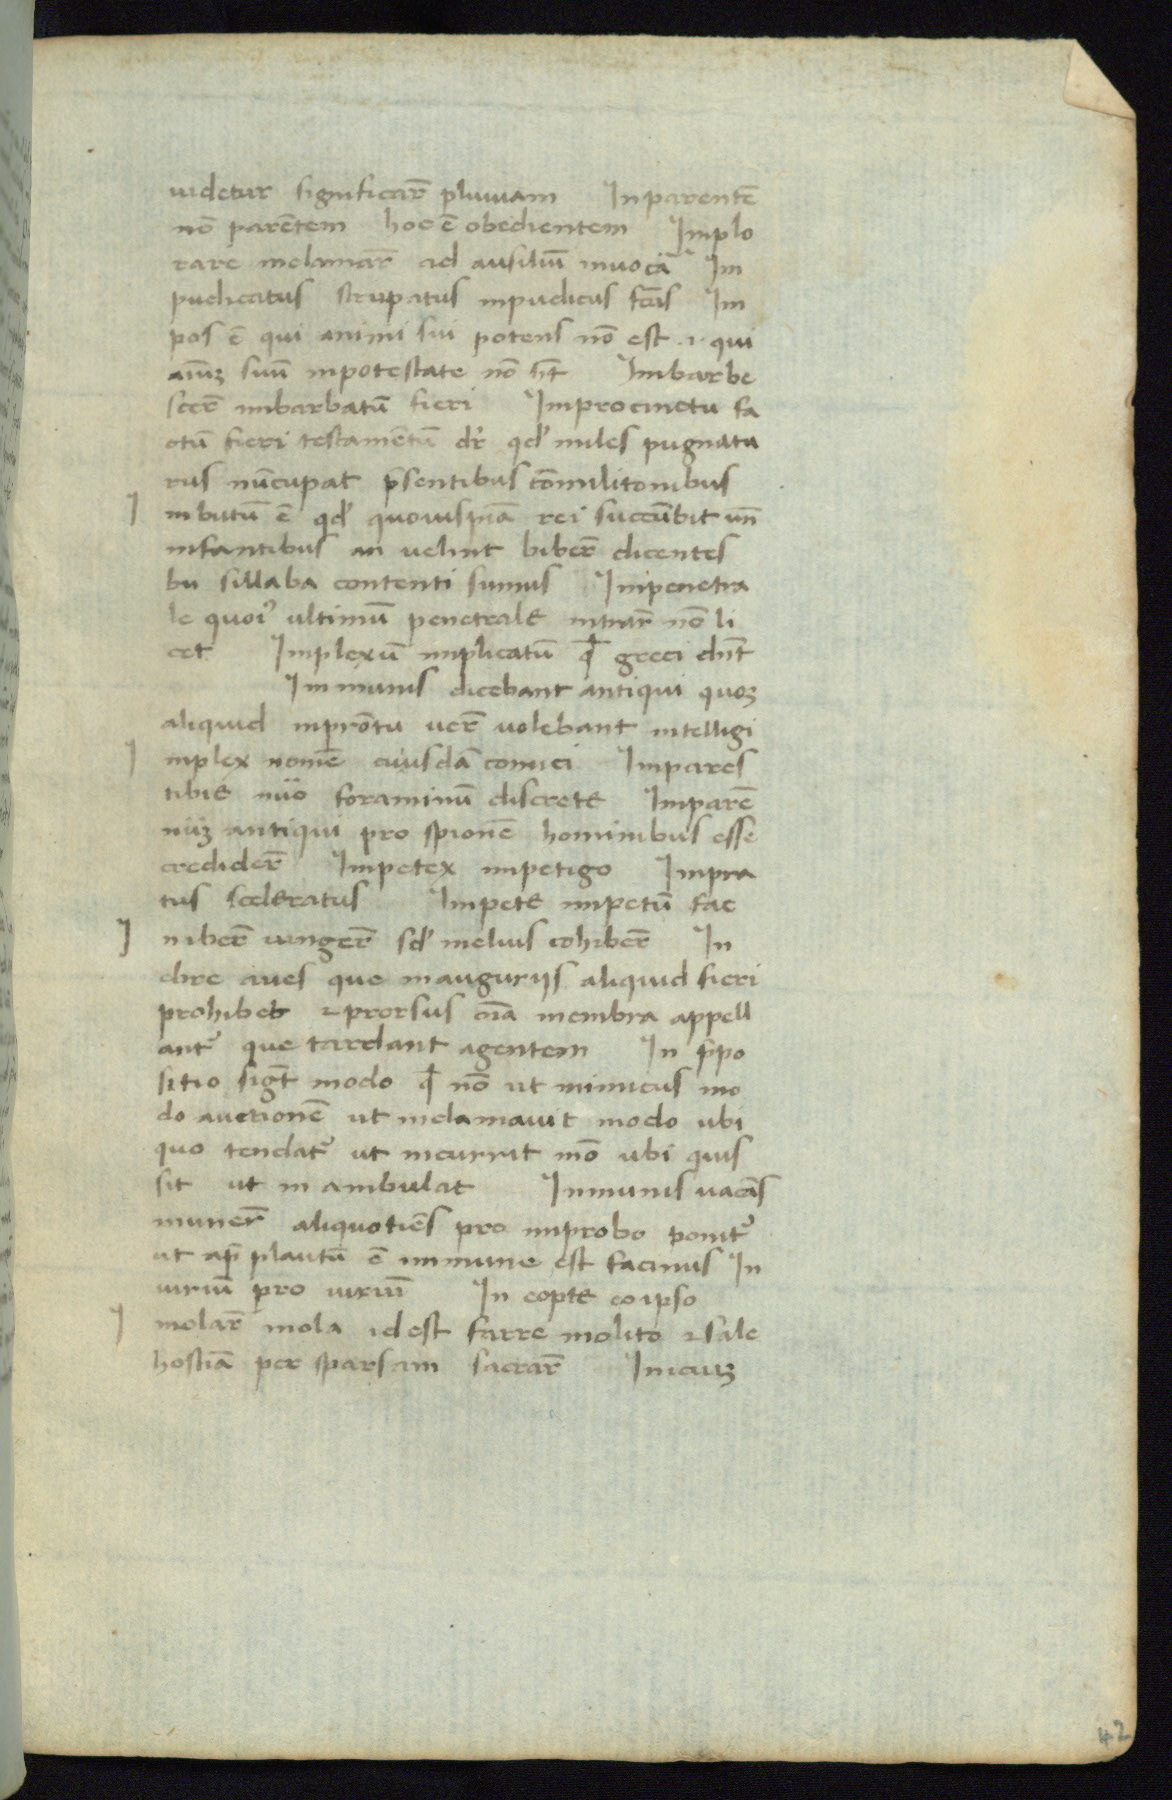 uidetur significar̄ pluuiam Inparentē
nō parētem hoc ē obedientem Implo
rare inclamar̄ ad ausiliū inuocā Im
pudicatus strupatus inpudicus fc̄us Im
pos ē qui animi sui potens nō est .i. qui
aīuꝫ suū inpotestate nō h̄t Imbarbe
scer̄ imbarbatū fieri Improcinctu fa
ctū fieri testamētū dr̄ qd̓ miles pugnatu
rus nūcupat p̄sentibus cōmilitonibus
I mbutū ē qd̓ quoiuspiā rei succūbit un̄
infantibus an uelint biber̄ dicentes
bu sillaba contenti sumus Impenetra
le quoi᾽ ultimū penetrale intrar̄ nō li
cet Implexū implicatū ꝙ greci dn̄t
Immunis dicebant antiqui quoꝫ
aliquid inprōtu uer̄ uolebant intelligi
I mplex nomē cuiusdā comici Impares
tibie nūo foraminū discrete Imparē
nūꝫ antiqui pro spionē hominibus esse
credider̄ Impetex impetigo Impia
tus sceleratus Impete impetū fac
I niber̄ iunger̄ sd̓ melius cohiber̄ In
ebre aues que inauguriis aliquid fieri
prohibet ⁊ prorsus oīa membra appell
ant᾽ que tardant agentem In p̄po
sitio sigt̄ modo ꝙ nō ut inimicus mo
do auctionē ut inclamauit modo ubi
quo tendat᾽ ut incurrit mō ubi quis
sit ut in ambulat Inmunis uacās
muner̄ aliquotiēs pro improbo ponit᾽
ut ap̄ plautū ē immune est facinus In
uirium pro uirium In eopte eo ipso
I molar̄ mola id est farre molito ⁊ sale
hostiā per sparsam sacrar̄ Incuꝫ
42